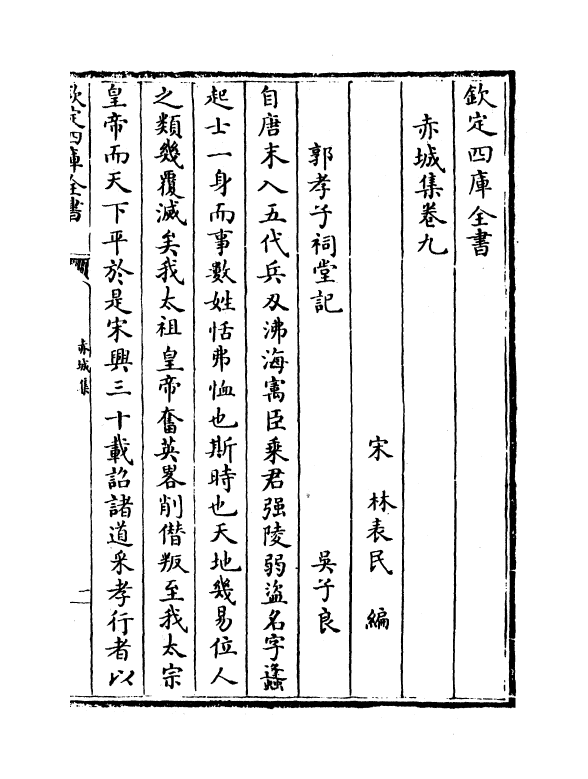 欽定四庫全書
赤城集卷九
宋 林表民 編
郭孝子祠堂記 吳子良
自唐末入五代兵刄沸海寓臣乘君强陵弱盜名字蠭
起士一身而事數姓恬弗恤也斯時也天地幾易位人
之類幾覆滅矣我太祖皇帝奮英畧削僭叛至我太宗
皇帝而天下平於是宋興三十載詔諸道采孝行者以
欽定四庫全書
赤城集
一